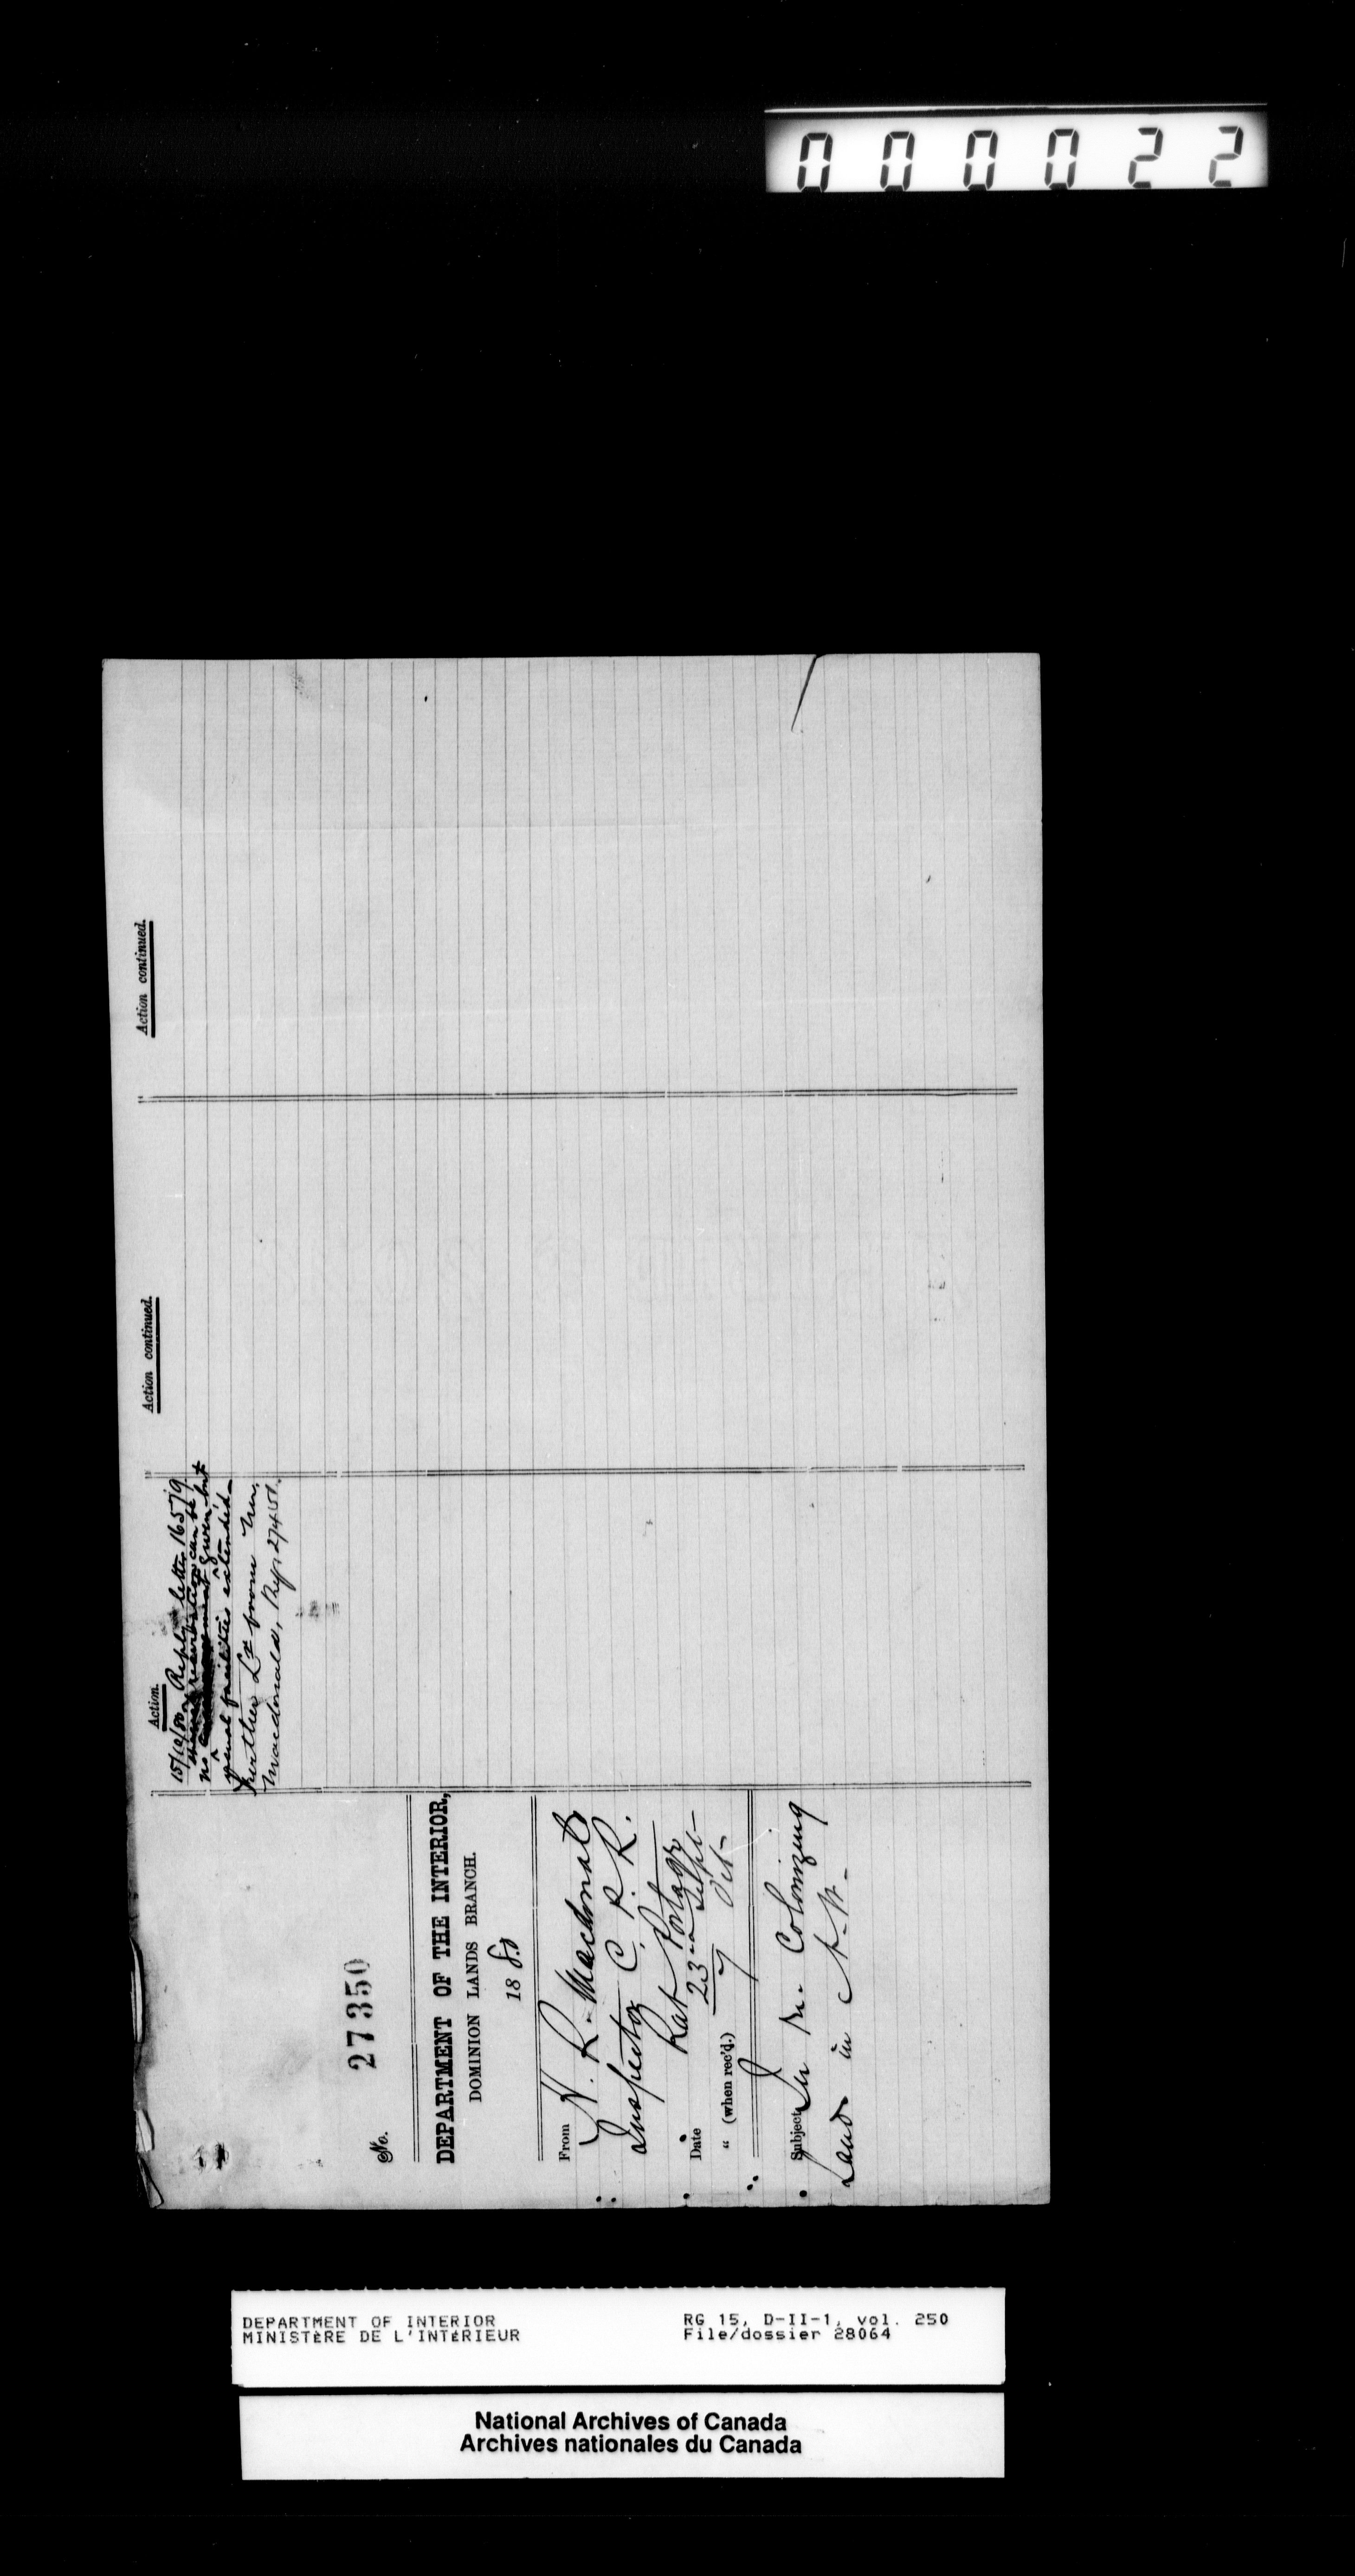 000022
No. 27350
DEPARTMENT OF THE INTERIOR,
DOMINION LANDS BRANCH.
1880
From N. R. Macdonald
Inspector C. P. R.
Rat Portage
Date 23rd Septr
" (when rec'd.) 7 Oct
Subject, In re. Colonizing
Land in N.W.
Action.
15/10/80 Reply letter 16579
reservation can be
no given, but
usual facilities extended
Further Lr from Mr
Macdonald, Ref. 27451.
Action continued.
Action continued.
DEPARTMENT OF INTERIOR
MINISTÈRE DE L'INTÉRIEUR
RG 15, D-II-1, vol. 250
File/dossier 28064
National Archives of Canada
Archives nationales du Canada